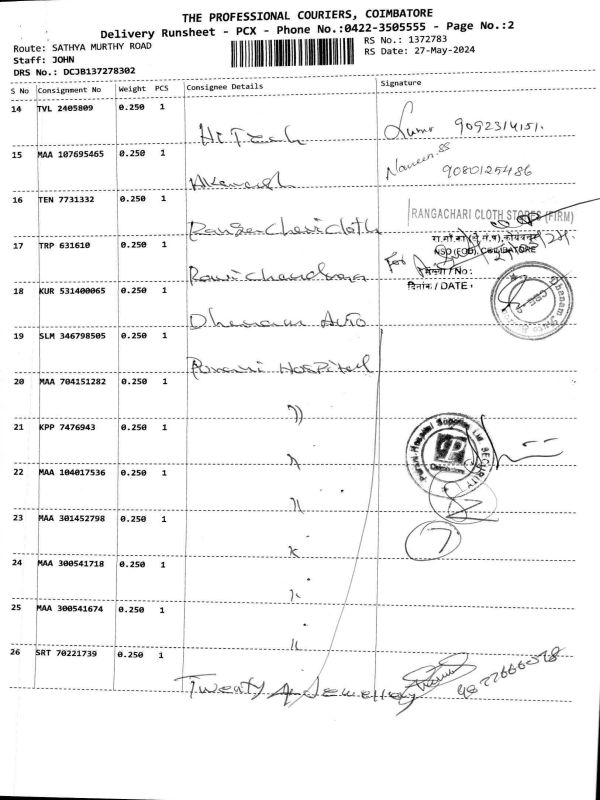 THE PROFESSIONAL COURIERS, COIMBATORE
Delivery Runsheet - PCX - Phone No.:0422-3505555 - Page No.:2
Route: SATHYA MURTHY ROAD
RS No.: 1372783
Staff: JOHN
RS Date: 27-May-2024
DRS No.: DCJB137278302
S No Consignment No Weight PCS Consignee Details Signature
14 TVL 2405809 0.250 1
Hi Tech 9092314151.
15 MAA 107695465 0.250 1
Naveen.SS
9080125486
16 TEN 7731332 0.250 1
RANGACHARI CLOTH STORES (FIRM)
Rangachari Cloth
17 TRP 631610 0.250 1
NSO (FOD), COIMBATORE
For
संख्या / No:
Ravichandran
18 KUR 531400065 0.250 1
दिनांक / DATE:
Dhanam Auto
Dhanam Auto
19 SLM 346798505 0.250 1
Purani Hospital
20 MAA 704151282 0.250 1
"
21 KPP 7476943 0.250 1
Purani Hospital Supplies Ltd SECURITY
GP
"
22 MAA 104017536 0.250 1
"
23 MAA 301452798 0.250 1
7
"
24 MAA 300541718 0.250 1
"
25 MAA 300541674 0.250 1
"
26 SRT 70221739 0.250 1
Twenty Jewellery